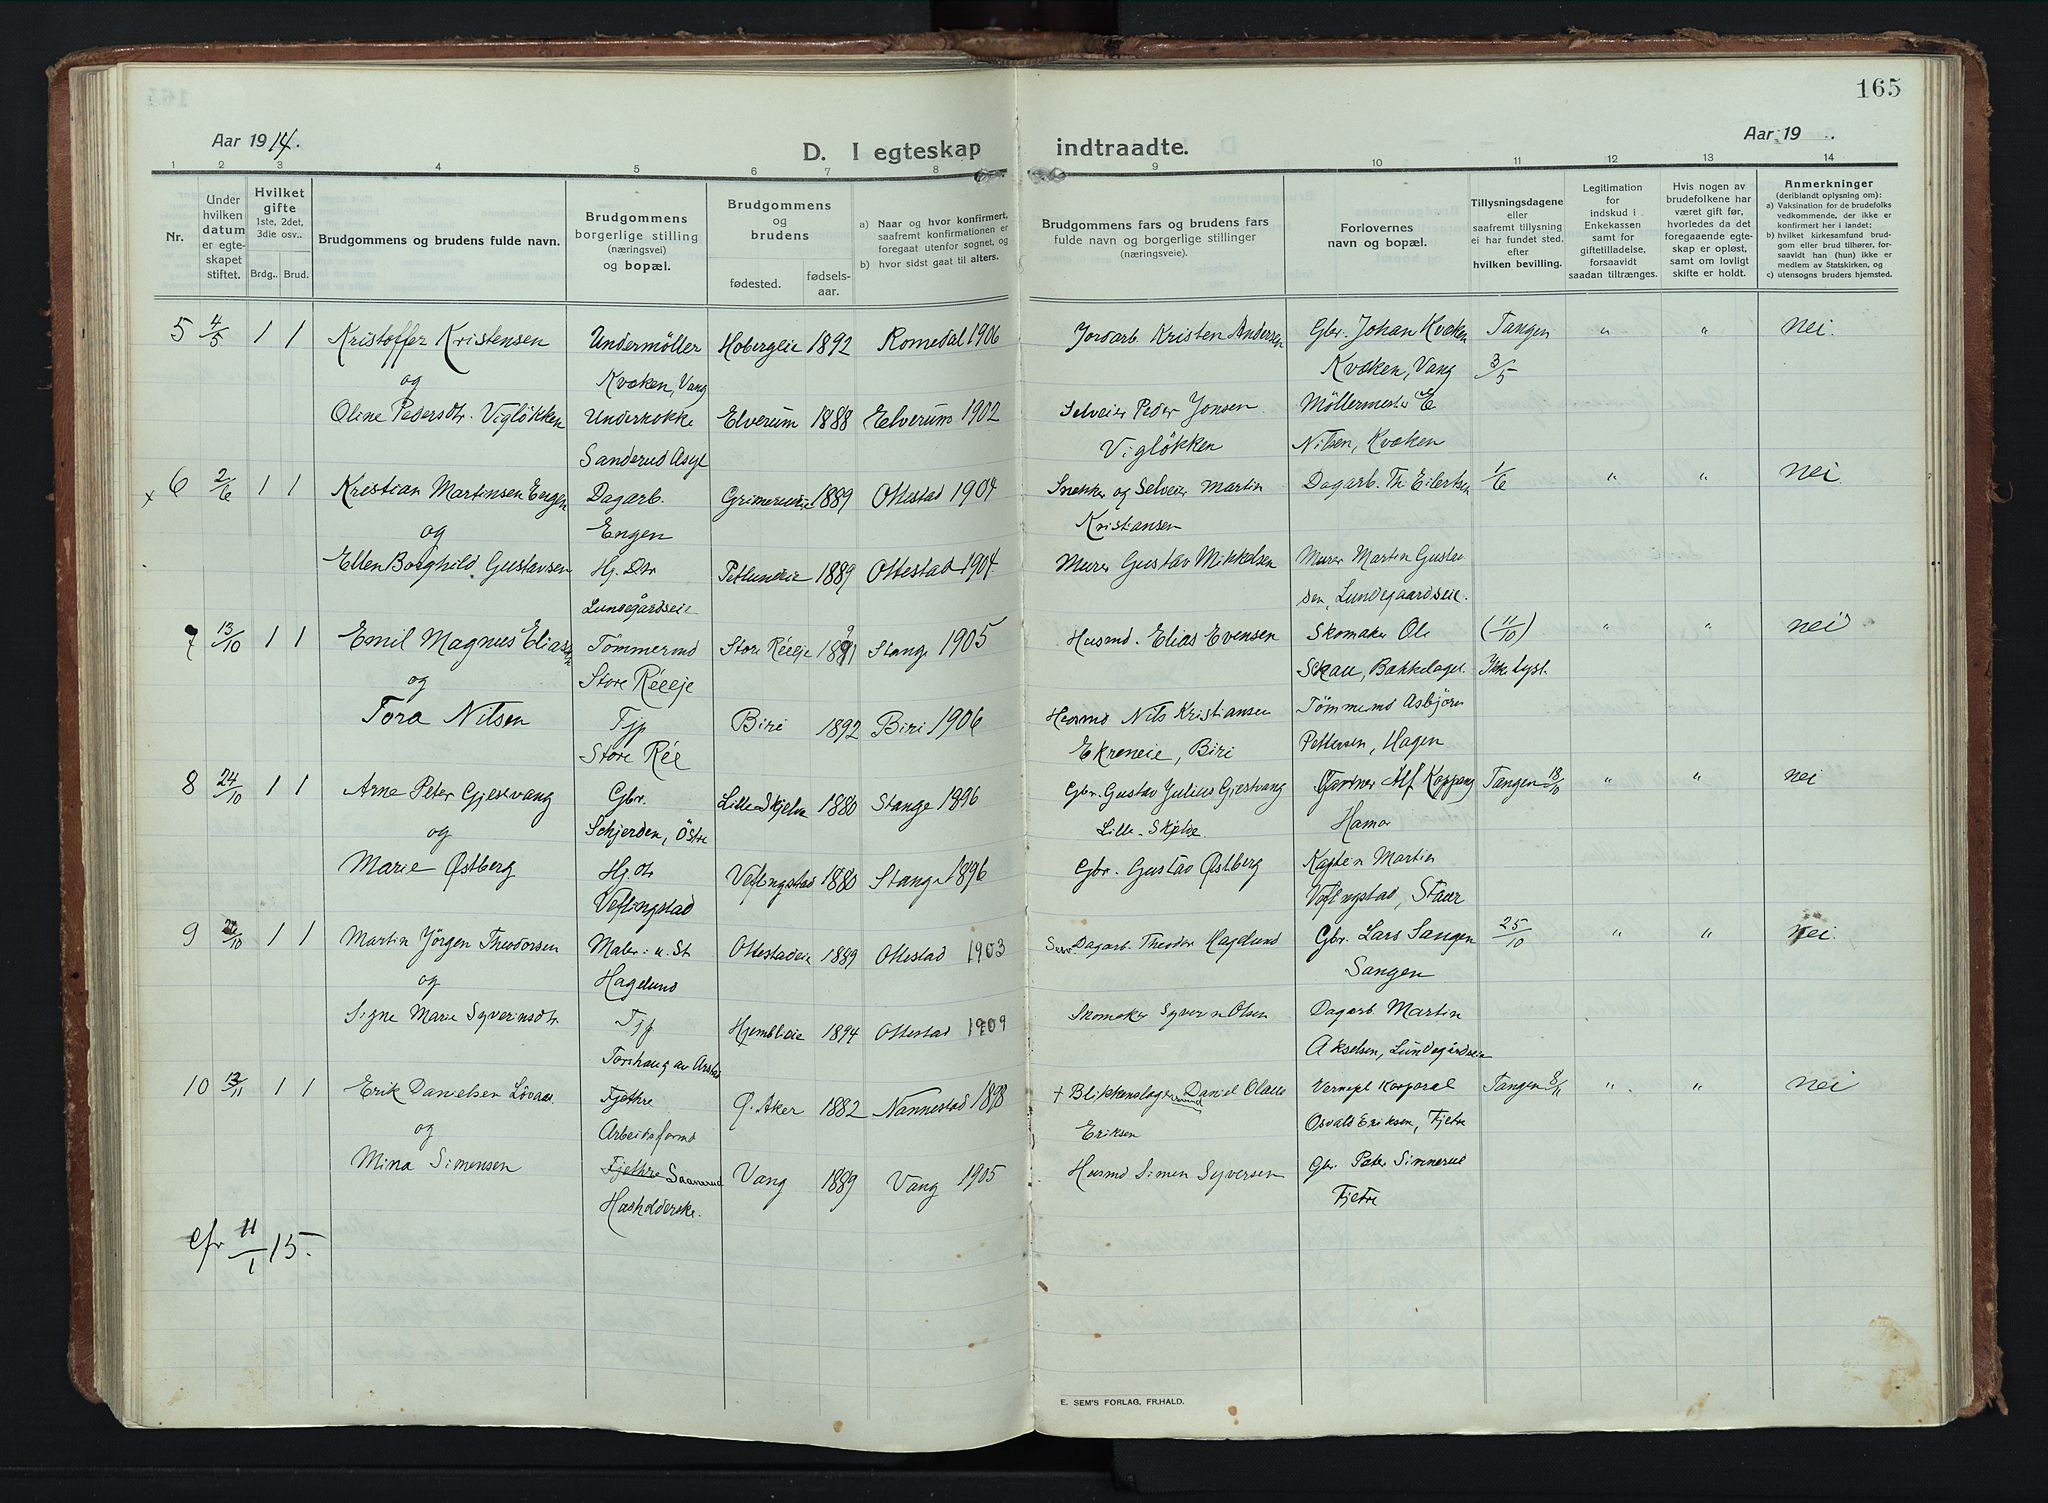 165
Aar 1914.
Aar 19
D. I egteskap indtraadte.
1 2 3 4 5 6 7 8 9 10 11 12 13 14
Nr.
Under hvilken datum er egteskapet stiftet.
Hvilket gifte 1ste, 2det, 3die osv..
Brdg.. Brud.
Brudgommens og brudens fulde navn.
Brudgommens borgerlige stilling (næringsvei) og bopæl.
Brudgommens og brudens
fødested. fødsels-aar.
a) Naar og hvor konfirmert, saafremt konfirmationen er foregaat utenfor sognet, og
b) hvor sidst gaat til alters.
Brudgommens fars og brudens fars fulde navn og borgerlige stillinger (næringsveie).
Forlovernes navn og bopæl.
Tillysningsdagene eller saafremt tillysning ei har fundet sted. efter hvilken bevilling.
Legitimation for indskud i Enkekassen samt for giftetilladelse, forsaavidt saadan tiltrænges.
Hvis nogen av brudefolkene har været gift før, hvorledes da det foregaaende egteskap er opløst, samt om lovligt skifte er holdt.
Anmerkninger (deriblandt oplysning om):
a) Vaksination for de brudefolks vedkommende, der ikke er konfirmert her i landet;
b) hvilket kirkesamfund brudgom eller brud tilhører, forsaavidt han (hun) ikke er medlem av Statskirken, og
c) utensogns bruders hjemsted.
5 4/5 1 1 Kristoffer Kristensen Undermöller Hobergeie 1892 Romedal 1906 Jordarb. Kristen Andersen Gbr. Johan Kvæken Tangen " " nei.
og Kvæken, Vang Kvæken, Vang 3/5
Oline Pedersdtr. Vigløkken Underkokke Elverum 1888 Elverum 1902 Selveier Peder Jonsen Möllermester
Sanderud Asyl Vigløkken Nilsen, Kvæken
x 6 2/6 1 1 Kristian Martinsen Engen Dagarb. 1889 Ottestad 1904 Snekker og Selveier Martin Dagarb. Th. Eilertsen 1/6 " " nei.
og Engen Kristiansen
Ellen Borghild Gustavsen Hj. Dtr Petlundeie 1889 Ottestad 1904 Murer Gustav Mikkelsen Murer Martin Gustav
Lundegårdseie sen, Lundegaardseie.
7 13/10 1 1 Emil Magnus Eliassen Tømmermd Store Réeeje 1891 Stange 1905 Husmd. Elias Evensen Skomaker Ole (11/10) " " nei
og Store Réeeje Skau, Bakkelaget Ikke lyst.
Tora Nilsen Tjp Biri 1892 Biri 1906 Husmd Nils Kristiansen Tömmermd Asbjörn
Store Rée Ekreneie, Biri Pettersen, Hagen
8 24/10 1 1 Arne Peter Gjestvang Gbr. Lille Skjelve 1880 Stange 1896 Gbr. Gustav Julius Gjestvang Gartner Alf Koppang Tangen 18/10 " " nei
og Schjerden, Östre Lille-Skjelve. Hamar
Marie Østberg Hj. dtr Veflingstad 1880 Stange 1896 Gbr. Gustav Østberg Kaptein Martin
Veflingstad Veflingstad, Staur
9 /10 1 1 Martin Jörgen Theodorsen Maler: u. St Ottestadeie 1889 Ottestad 1903 Dagarb. Theodor Hagelund Gbr. Lars Sangen 25/10 " " nei.
og Hagelund Sangen
Signe Marie Syverinsdtr. Tjp Hjemslieie 1894 Ottestad 1909 Skomaker Syverin Olsen Dagarb. Martin
Torshaug av Arstad Akselsen, Lundegårdseie
10 13/11 1 1 Erik Danielsen Lövaas Fjethre Ø. Aker 1882 Nannestad 1898 + Blikkenslager Daniel Olaus Vernepl. Korporal Tangen 8/11 " " nei
og Arbeidsformd Eriksen Osvald Eriksen, Fjetre
Mina Simensen Fjethre Saanerud Vang 1889 Vang 1905 Husmd Simen Syversen Gbr. Peter Simnerud
Husholderske. Fjetre
cfr 11/1 15.
E. SEM'S FORLAG, FR.HALD.